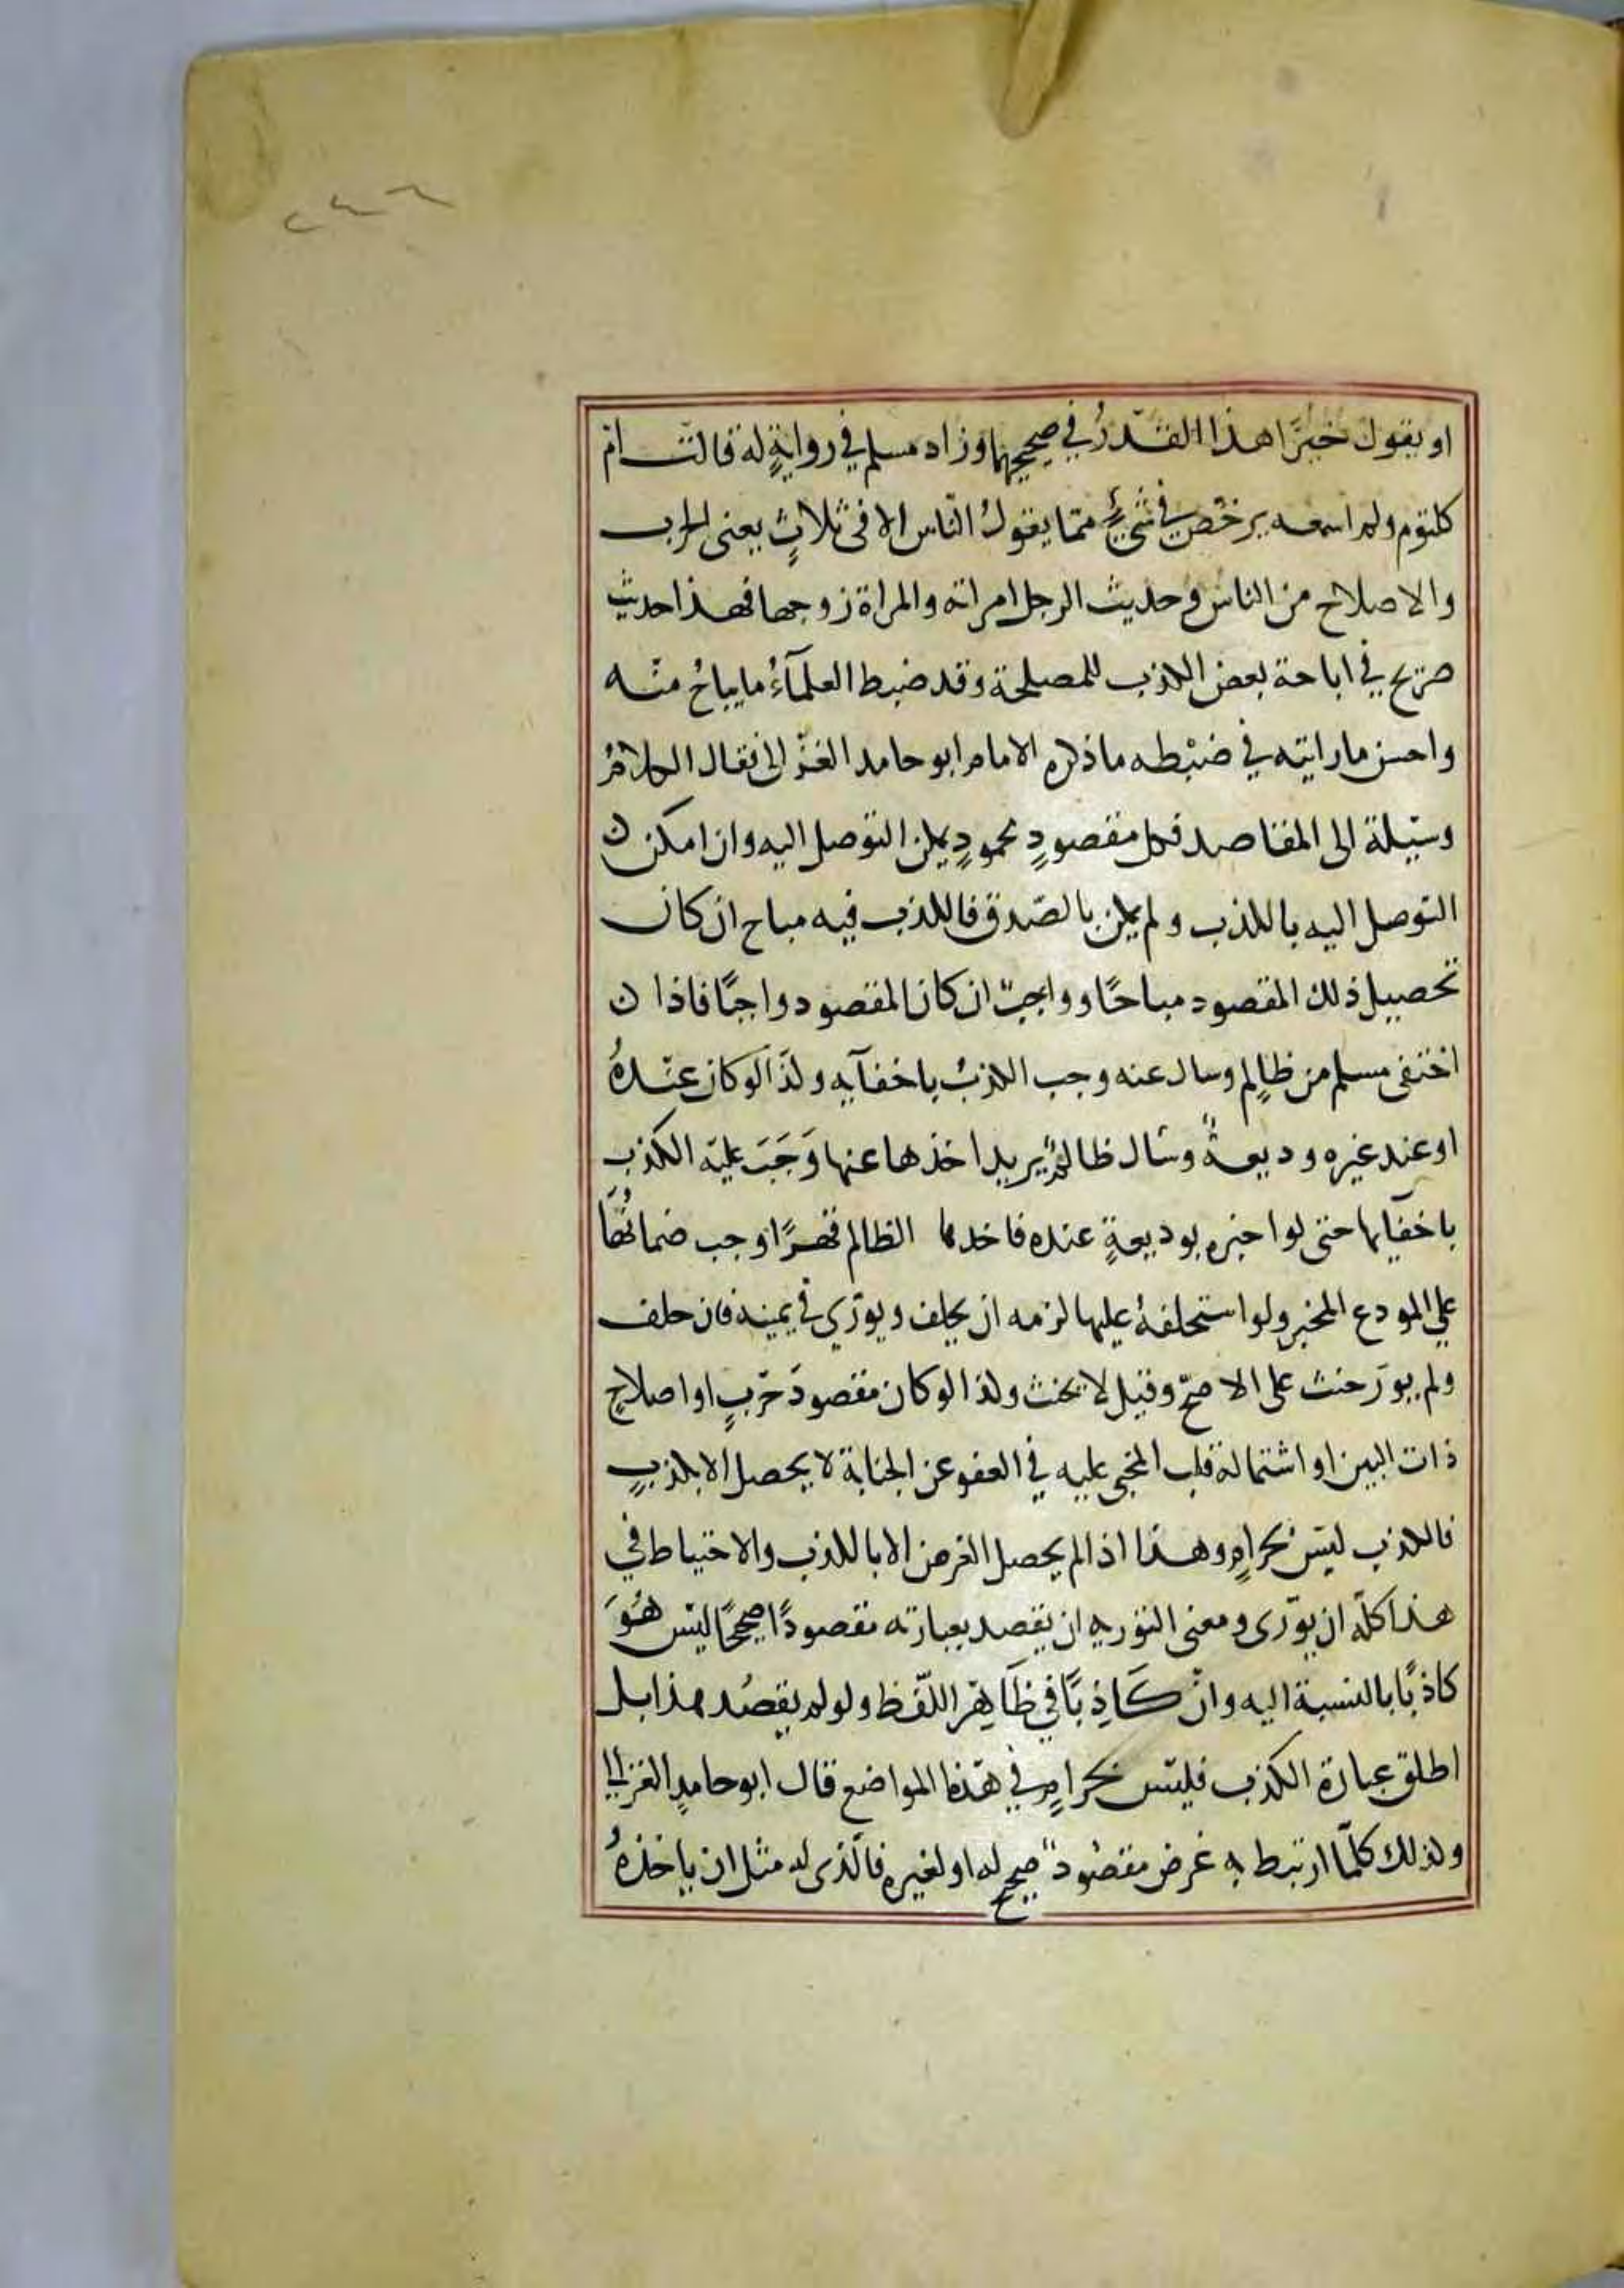 ٢٤٦
او يقول خيرًا هذا القدرُ في صحيحيهما وزاد مسلم في روايةٍ له قالت ام
كلثوم ولم اسمعه يرخّص في شيءٍ ممّا يقولُ النّاس الا في ثلاثٍ يعنى الحرب
والاصلاح من الناس وحديث الرجل امراته والمراة زوجها فهذا حديث
صريح في اباحة بعض الكذب للمصلحة وقد ضبط العلمآءُ ما يباحُ منه
واحسن ما رايته في ضبْطه ما ذكره الامام ابو حامد الغزّالى فقال الكلامُ
وسيلة الى المقاصد فكل مقصودٍ محمودٍ يمكن التوصل اليه وان امكن ن
التوصل اليه بالكذب ولم يمكن بالصّدق فالكذب فيه مباح ان كان
تحصيل ذلك المقصود مباحًا وواجبٌ ان كان المقصود واجبًا فاذا ن
اختفى مسلم من ظالِم وسال عنه وجب الكذبُ باخفآيه ولذا لو كان عندهُ
او عند غيره وديعةٌ وسَال ظالمٌ يريد اخذها عنها وَجَبَ عليْه الكذب
باخفآيها حتى لو اخبره بوديعةٍ عنده فاخدها الظالم قهرًا وجب ضمانُهَا
على المودع المخبر ولو استحلفهُ عليها لزمه ان يحلف ويورّي في يمينه فان حلف
ولم يورَ حنث على الاصحّ وقيل لا يحنث ولذا لو كان مقصودَ حَربٍ او اصلاحِ
ذات البين او اشتمالة قلب المجنى عليه في العفو عن الجناية لا يحصل الا بكذبٍ
فالكذب ليْسَ بحرامٍ وهذا اذا لم يحصل الغرض الا بالكذب والاحتياط في
هذا كلّه ان يورّى ومعنى التوريه ان يقصد بعبارته مقصودًا صحيحًا ليْس هُوَ
كاذبًا بالنسبة اليه وان كَاذِبًا في ظَاهِر اللّفظ ولو لم يقصُد هذا بل
اطلق عبارة الكذب فليْس بحرامٍ في هَذا المواضع قال ابو حامدٍ الغزالي
ولذلك كلّما ارتبط به غرض مقصُودٌ صحيح له او لغيره فالّذى له مثل ان ياخذهُ